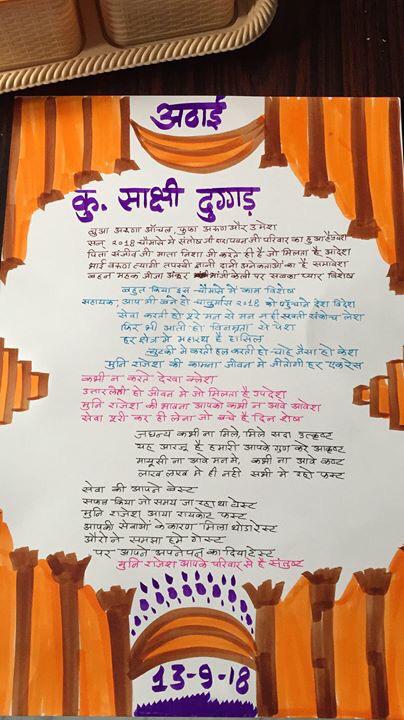 अठाई
कु. साक्षी दुग्गड़
भुआ अरुणा आँचल, फुफा अरुण और उमेश
सन् २०१8 चौमासे में संतोष जी पारा पवन जी परिवार का हुआ है प्रवेश
पिता संजीव जी माता निशा जी करते ही है जो मिलता है आदेश
भाई वरुण त्यागी तपस्वी ज्ञानी दानी अनेकताओं का है समावेश
बहन महक जीजा अंकुर भांजी केली पर सबका प्यार विशेष
बहुत किया इस चौमासे में काम विशेष
सहायक आप भी बने हो चातुर्मास २०१8 को पहुंचाने देश विदेश
सेवा करती हो पूरे मन से मन न ही रखती संकोच लेश
फिर भी आती हो विनम्रता से पेश
हर क्षेत्र में महारथ है हासिल
चुटकी में करती हल करती हो चाहे जैसा हो केश
मुनि राजेश की कामना जीवन में जीतोगी हर एक रेस
कभी न करते देखा क्लेश
उतार लेती हो जीवन में जो मिलता है उपदेश
मुनि राजेश की भावना आपको कभी न आवे आवेश
सेवा पूरी कर ही लेना जो बचे है दिन शेष
जघन्य कभी ना मिले, मिले सदा उत्कृष्ट
यह आरजू है हमारी आपके गुण करे आकृष्ट
मायूसी ना आवे मन में, कभी ना आवे कष्ट
लाख लाख में ही नहीं सभी में रहो फस्ट
सेवा की आपने बेस्ट
सफल किया जो समय जा रहा था वेस्ट
मुनि राजेश आया रायकोट फस्ट
आपकी सेवाओं के कारण मिला थोडा रेस्ट
औरों ने समझा हमें गेस्ट
पर आपने अपनेपन का दिया टेस्ट
मुनि राजेश आपके परिवार से है संतुष्ट
13-9-18